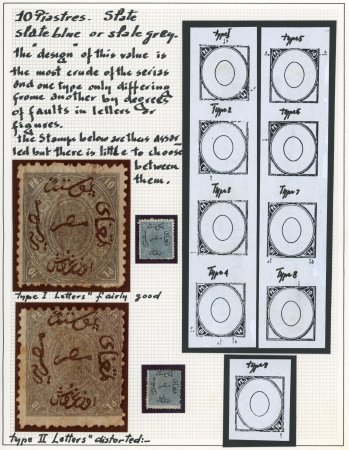 10 Piastres. Slate
slate blue or slate grey.
The "design" of this value is
the most crude of the series
and one type only differing
frome another by degrees
of faults in letters or
figures.
The Stamps below are thus assor
ted but there is little to choose
between
them.
Type I Letters" fairly good
Type II Letters" distorted:-
Type 1
Type 5
Type 2
Type 6
Type 3
Type 7
Type 4
Type 8
Type 9